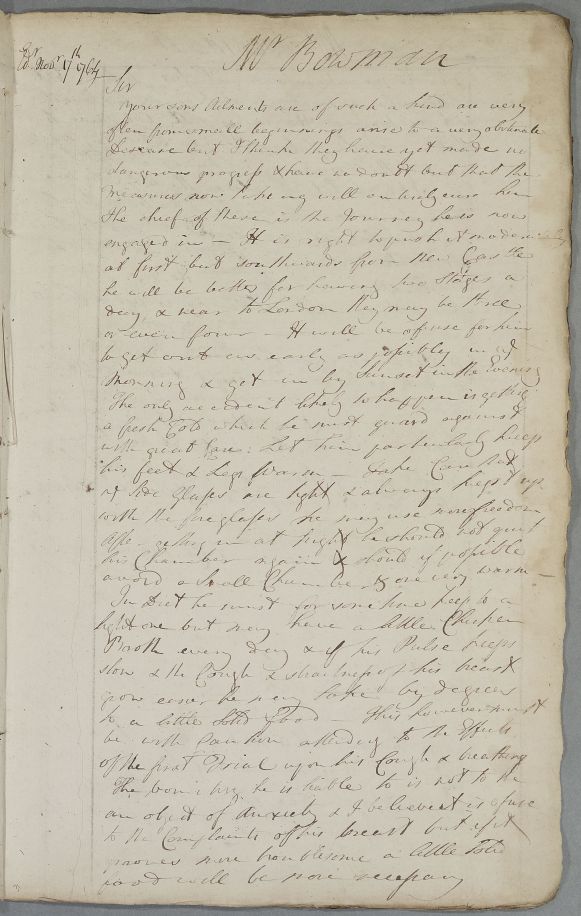 Mr Bowman
Edr Novr 17th 1764
Sir
Your sons Ailments are of such a kind as very
often from small beginnings arise to a very obstinate
Disease but I think they have yet made no
dangerous progress & have no doubt but that the
measures now taking will entirely cure him
The chief of these is the Journey he is now
engaged in — It is right to push it moderately
at first but southwards from New Castle
he will be better for having two Stages a
day, & near to London they may be three
or even four — It will be of use for him
to get out as early as possibly in the
morning & get in by Sunset in the Evening
The only accident likely to happen is getting
a fresh Cold which he must guard against
with great Care: Let him particularly keep
his feet & Legs warm — take Care that
the side Glasses are tight & always kept up
with the foreglasses he may use more freedom
After getting in at Night he should not quit
his Chamber again & should if possible
avoid a small Chamber & one very warm —
In Diet he must for some time keep to a
light one but may have a little Chicken
Broth every day & if his Pulse keeps
slow & the Cough & straitness of his breast
grow easier he may take by degrees
to a little solid food — This however must
be with Caution attending to the Effects
of the first Trial upon his Cough & breathing
The vomiting he is liable to is not to be
an object of Anxiety & I believe it is of use
to the Complaints of his breast but if it
proves more troublesome a little solid
food will be more necessary